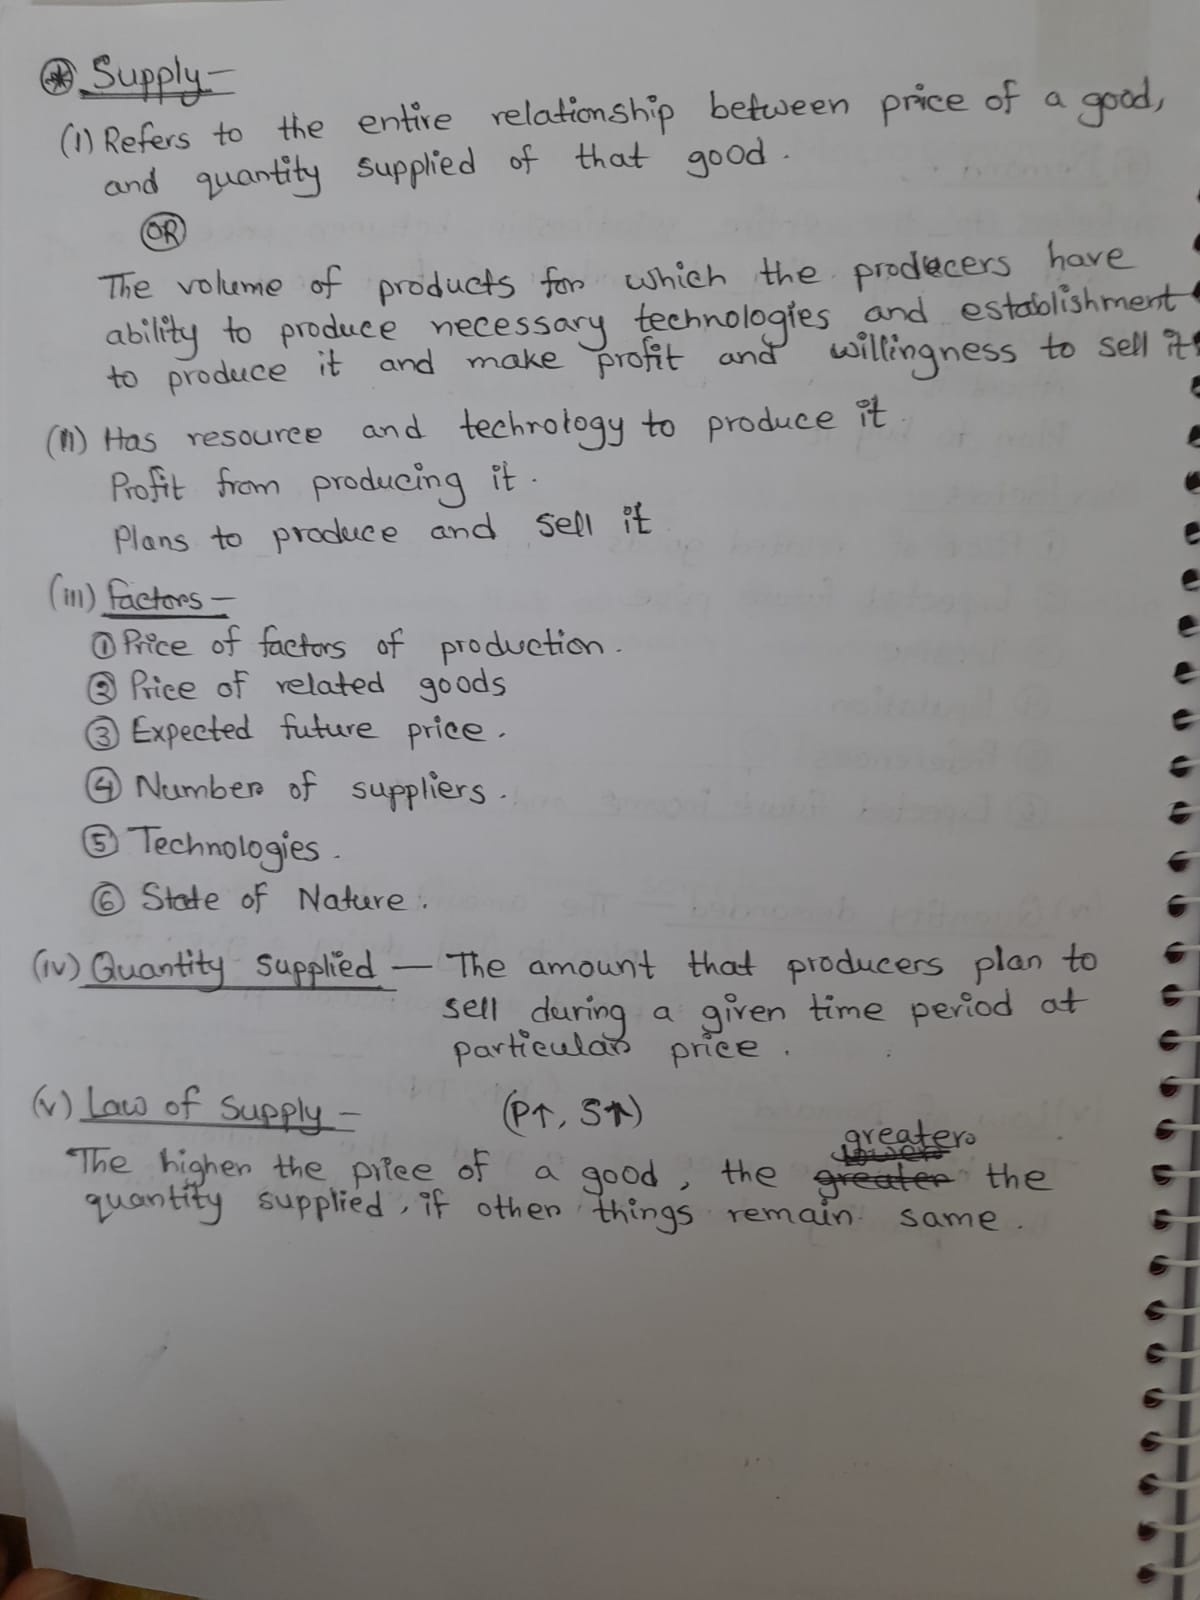 ⊛ Supply –
(i) Refers to the entire relationship between price of a good,
and quantity supplied of that good.
OR
The volume of products for which the producers have
ability to produce necessary technologies and establishment
to produce it and make profit and willingness to sell it
(ii) Has resource and technology to produce it.
Profit from producing it.
Plans to produce and sell it
(iii) Factors –
① Price of factors of production.
② Price of related goods
③ Expected future price.
④ Number of suppliers.
⑤ Technologies.
⑥ State of Nature.
(iv) Quantity Supplied – The amount that producers plan to
sell during a given time period at
particular price.
(v) Law of Supply – (P↑, S↑)
greater
lower
The higher the price of a good, the greater the
quantity supplied, if other things remain same.